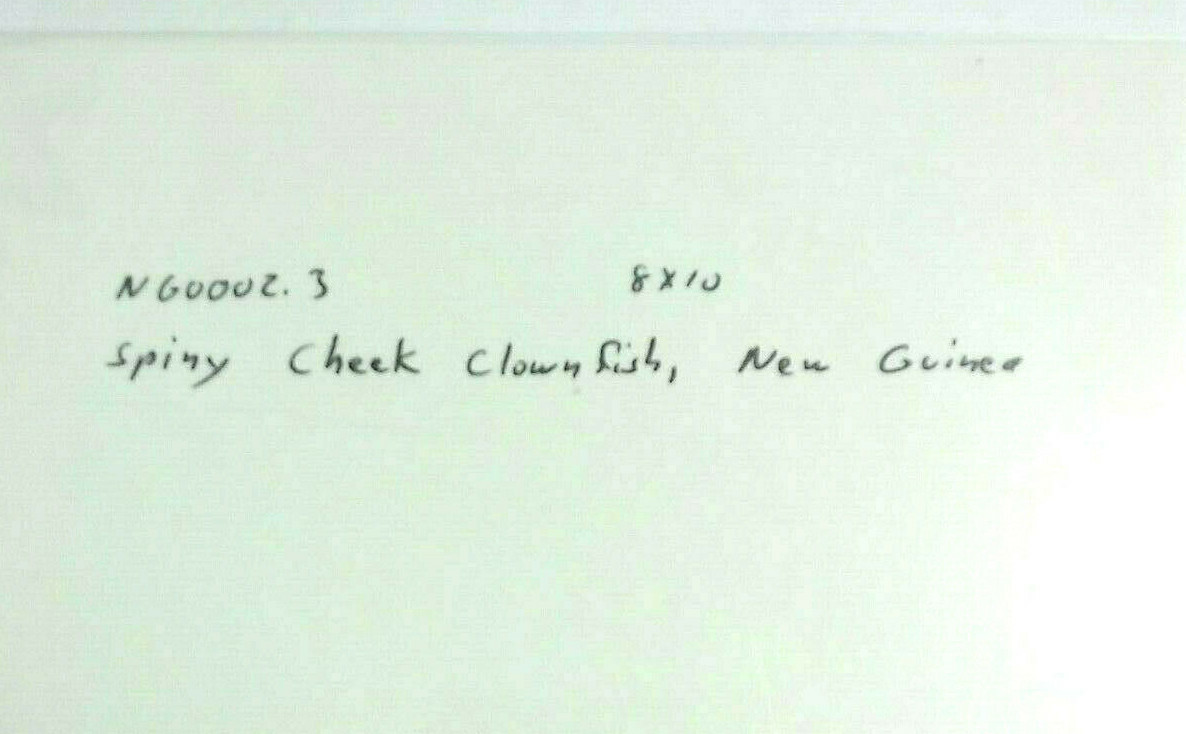 NG0002.3 8X10
Spiny Cheek Clownfish, New Guinea